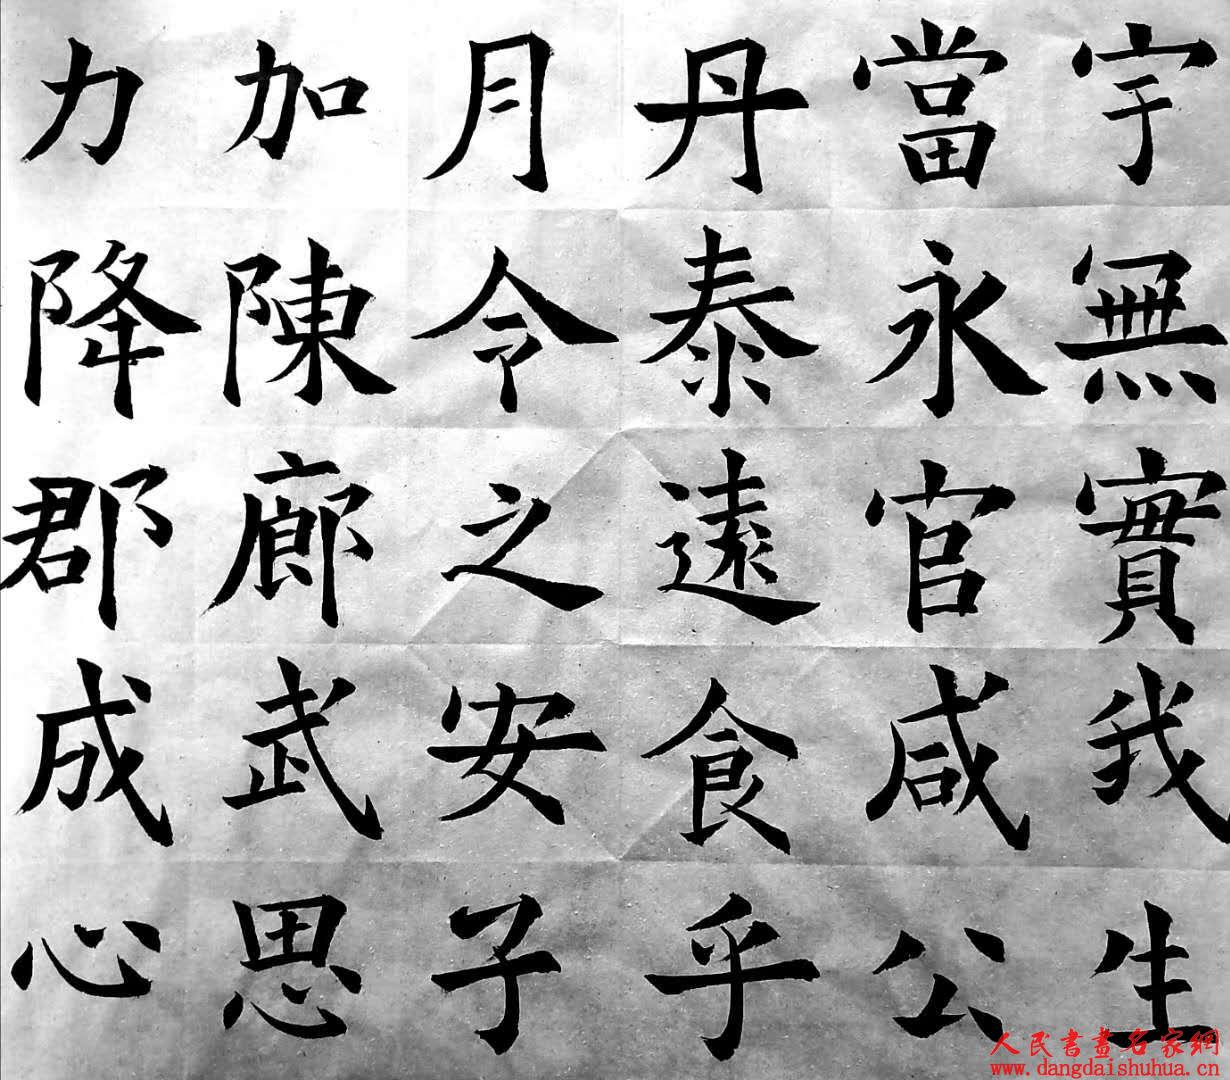 宇無實我生
當永官咸公
丹泰遠食乎
月令之安子
加陳廊武思
力降郡成心
人民書畫名家網
www.dangdaishuhua.cn